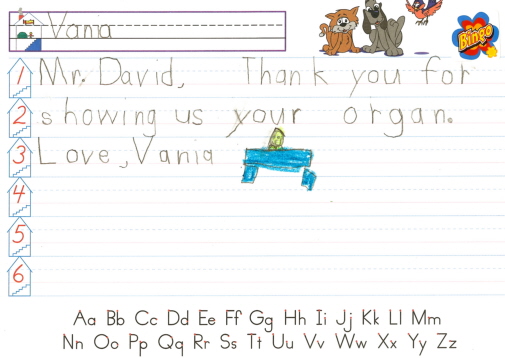 Vania
Bingo
1 Mr. David, Thank you for
2 showing us your organ.
3 Love, Vania
4
5
6
Aa Bb Cc Dd Ee Ff Gg Hh Ii Jj Kk Ll Mm
Nn Oo Pp Qq Rr Ss Tt Uu Vv Ww Xx Yy Zz